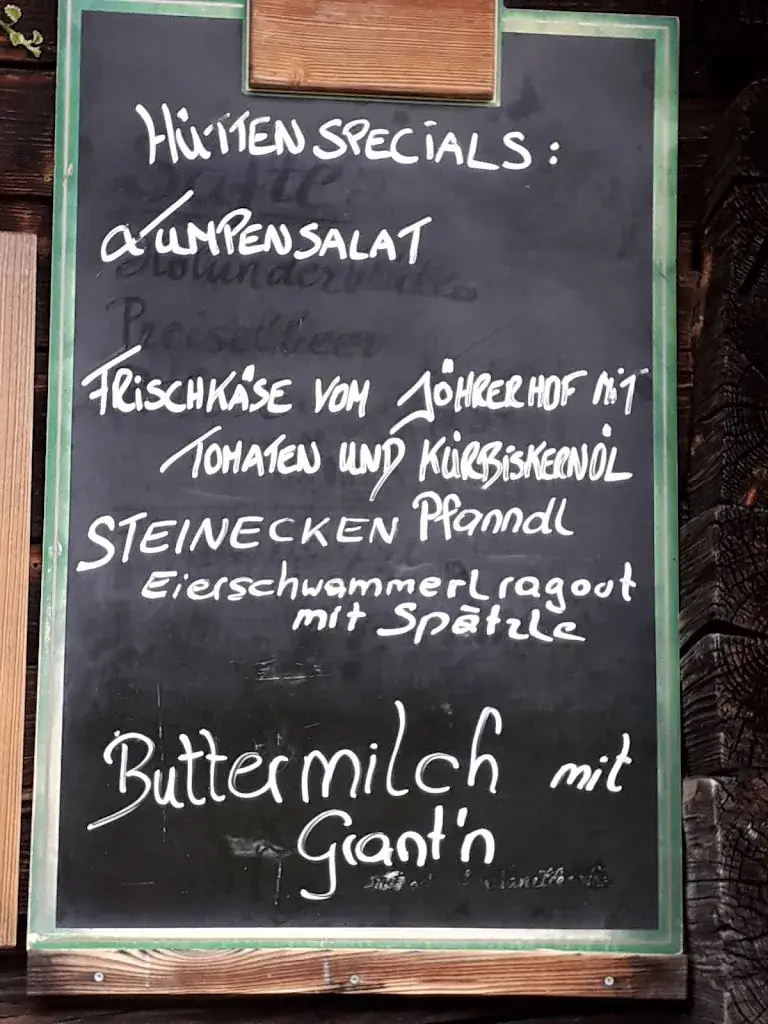 HÜTTEN SPECIALS:
LUMPENSALAT
FRISCHKÄSE VOM JÖHRERHOF MIT
TOMATEN UND KÜRBISKERNÖL
STEINECKEN Pfanndl
Eierschwammerlragout
mit Spätzle
Buttermilch mit
Grant'n